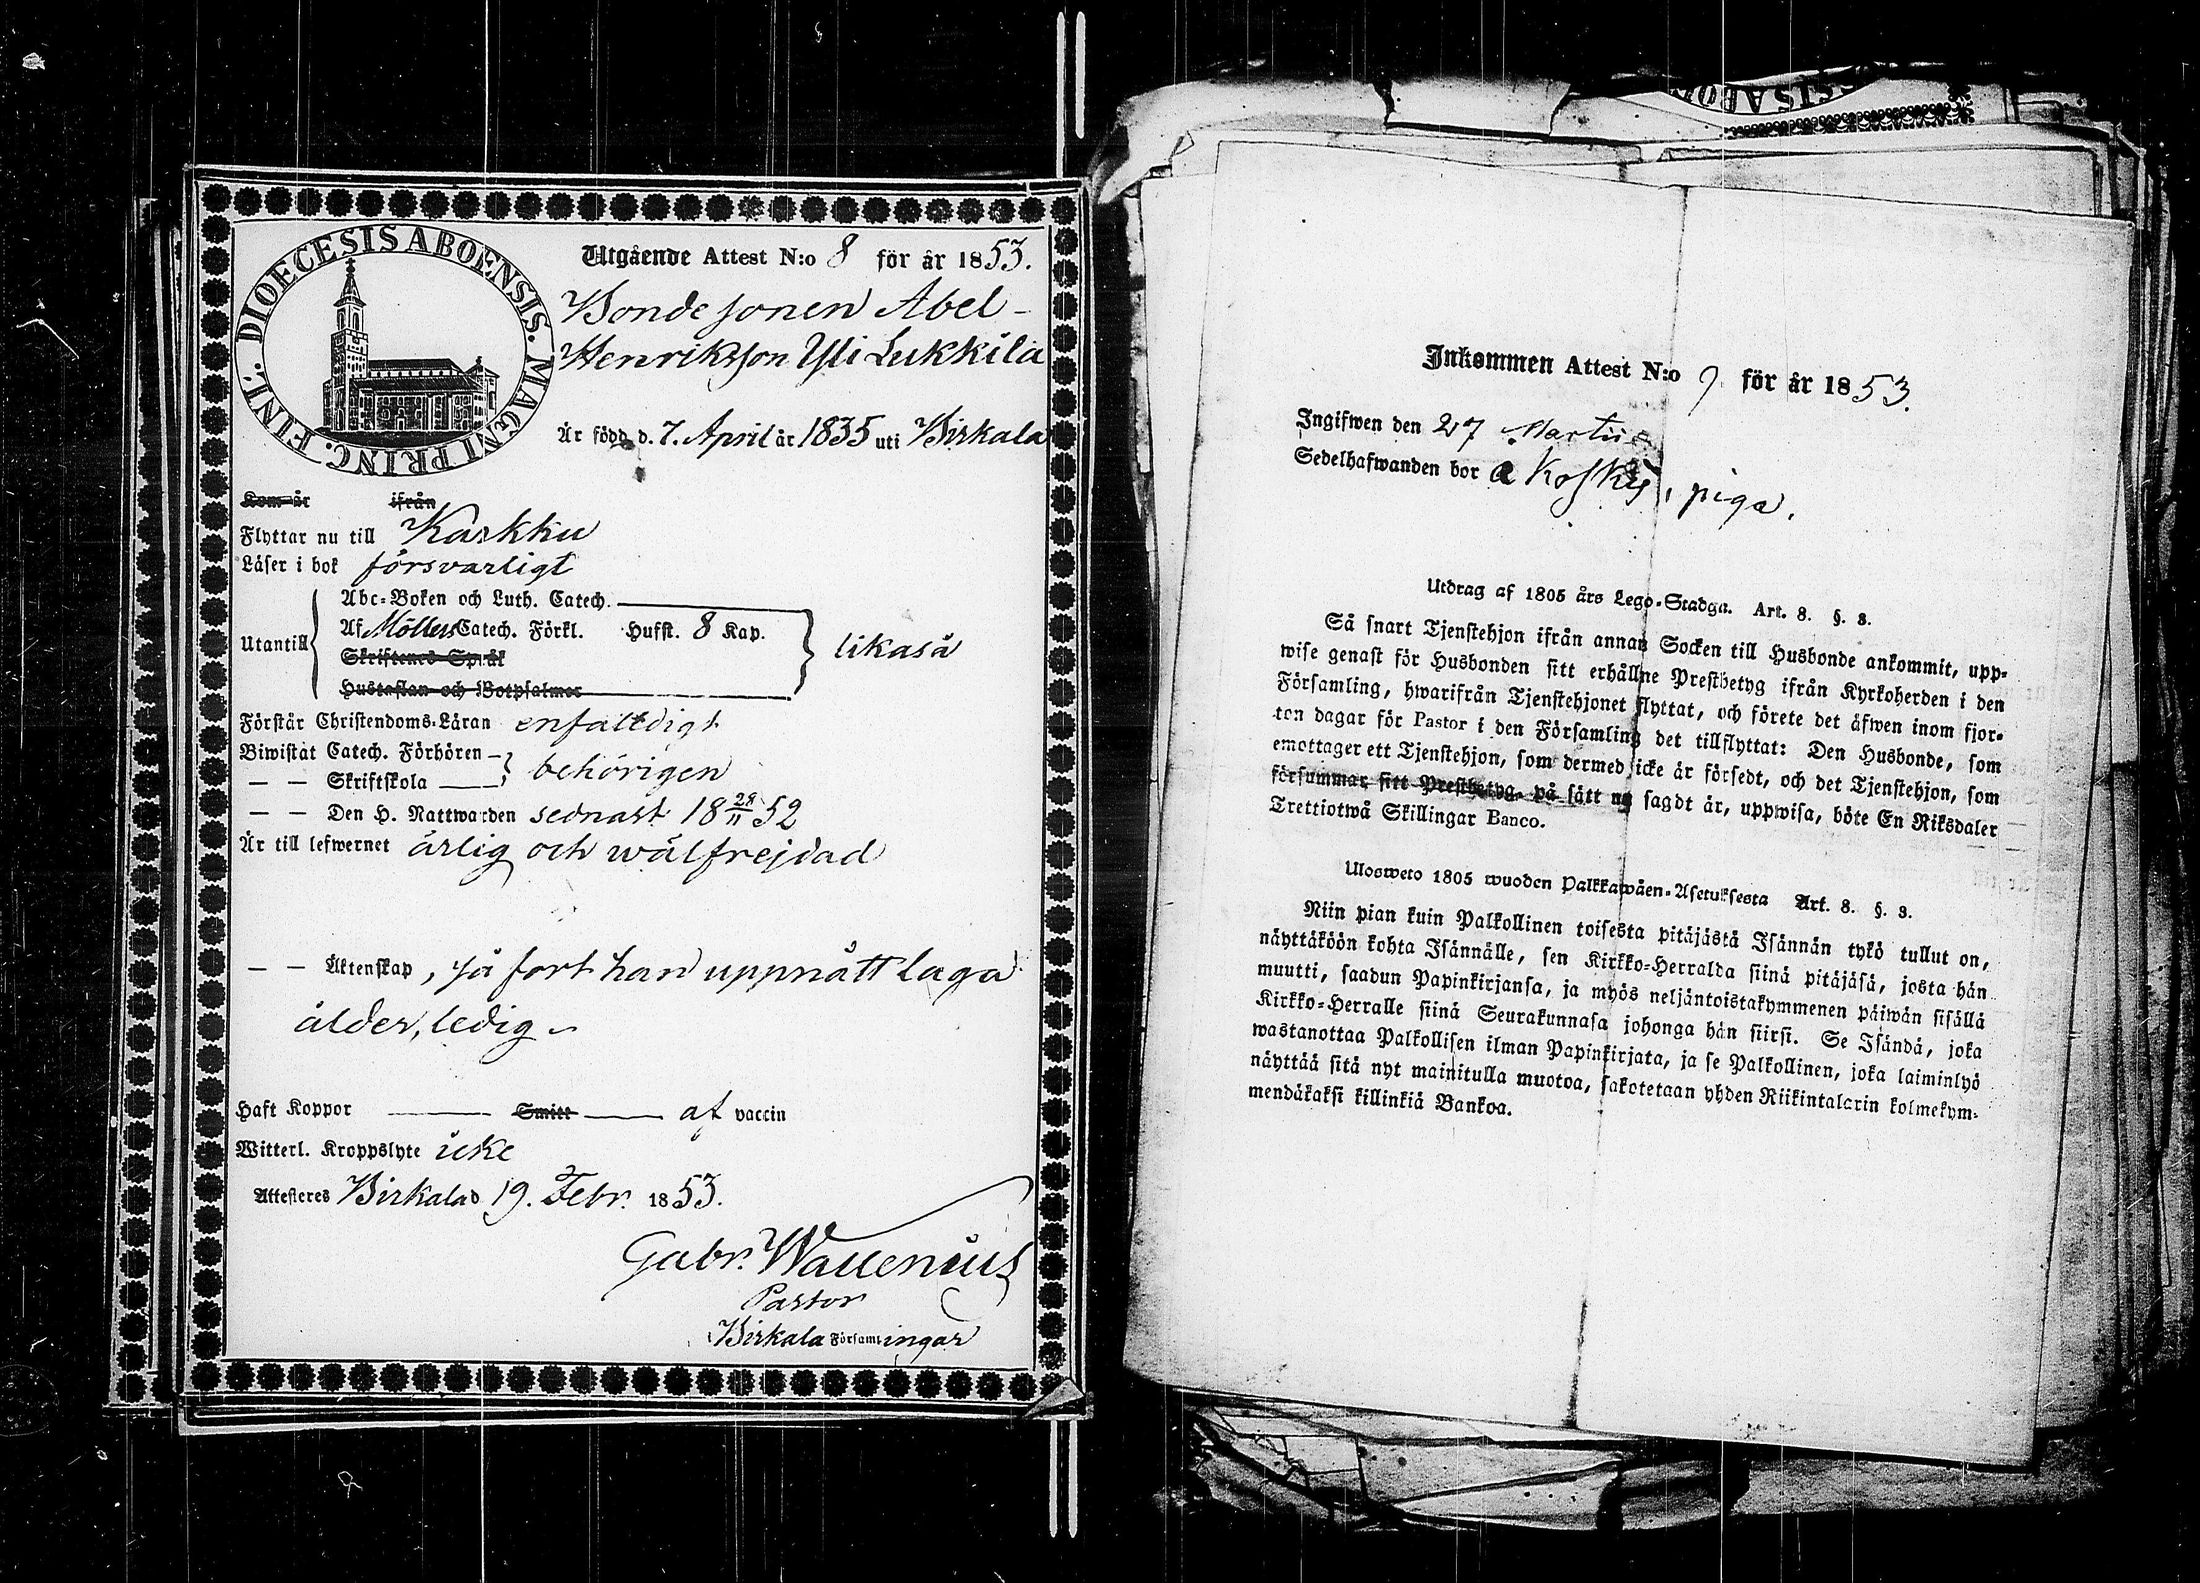 DIOECESIS ABOENSIS. MAGNI PRINC. FINL.
Utgående Attest N:o 8 för år 1853.
Bonde sonen Abel
Henriksson Yli Lukkila
Är född d. 7. April år 1835 uti Birkala
Kom år ifrån
Flyttar nu till Karkku
Läser i bok försvarligt
Utantill
Abc-Boken och Luth. Catech.
Af Möllers Catech. Förkl. Husst. 8 Kap.
Skriftenes Språk
Hustaflan och Botpsalmer
likaså
Förstår Christendoms-Läran enfaldigt
Biwistat Catech. Förhören
— — Skriftskola
behörigen
— — Den H. Nattwarden sednast 18 28/11 52
Är till lefwernet ärlig och wälfrejdad
— — Äktenskap, så fort han uppnått laga
ålder, ledig
Haft Koppor Smitt af vaccin
Witterl. Kroppslyte icke
Attesteres Birkala d 19. Febr. 1853.
Gabr. Wallenius
Pastor
Birkala Församlingar
SIS ABO
Inkommen Attest N:o 9 för år 1853.
Ingifwen den 27 Martii
Sedelhafwanden bor a Koskis, piga.
Utdrag af 1805 års Lego-Stadga. Art. 8. §. 3.
Så snart Tjenstehjon ifrån annan Socken till Husbonde ankommit, upp-
wise genast för Husbonden sitt erhållne Prestbetyg ifrån Kyrkoherden i den
Församling, hwarifrån Tjenstehjonet flyttat, och förete det äfwen inom fjor-
ton dagar för Pastor i den Församling det tillflyttat: Den Husbonde, som
emottager ett Tjenstehjon, som dermed icke är försedt, och det Tjenstehjon, som
försummar sitt Prestbetyg, på sätt nu sagdt är, uppwisa, böte En Riksdaler
Trettiotwå Skillingar Banco.
Ulosweto 1805 wuoden Palkkawäen-Asetuksesta Art. 8. §. 3.
Niin pian kuin Palkollinen toisesta pitäjästä Isännän tykö tullut on,
näyttäköön kohta Isännälle, sen Kirkko-Herralda siinä pitäjäsä, josta hän
muutti, saadun Papinkirjansa, ja myös neljäntoistakymmenen päiwän sisällä
Kirkko-Herralle siinä Seurakunnasa johonga hän siirsi. Se Isändä, joka
wastanottaa Palkollisen ilman Papinkirjata, ja se Palkollinen, joka laiminlyö
näyttää sitä nyt mainitulla muotoa, sakotetaan yhden Riikintalarin kolmekym-
mendäkaksi killinkiä Bankoa.